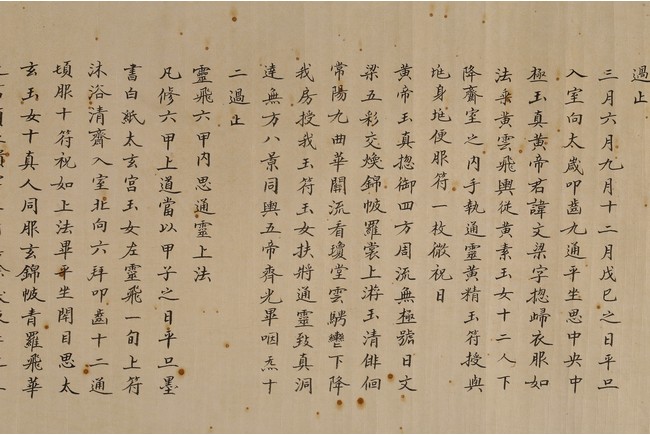 過止
三月六月九月十二月戊巳之日平旦
入室向太歲叩齒九通平坐思中央中
極玉真黄帝君諱文梁字摠歸衣服如
法乘黄雲飛輿從黄素玉女十二人下
降齋室之内手執通靈黄精玉符授與
地身地便服符一枚微祝曰
黄帝玉真摠御四方周流無極號曰文
梁五彩交煥錦帔羅裳上游玉清徘徊
常陽九曲華關流看瓊堂雲騁轡下降
我房授我玉符玉女扶將通靈致真洞
達無方八景同輿五帝齊光畢咽炁十
二過止
靈飛六甲内思通靈上法
凡修六甲上道當以甲子之日平旦墨
書白紙太玄宫玉女左靈飛一旬上符
沐浴清齋入室北向六拜叩齒十二通
頃服十符祝如上法畢平坐閉目思太
玄玉女十真人同服玄錦帔青羅飛華